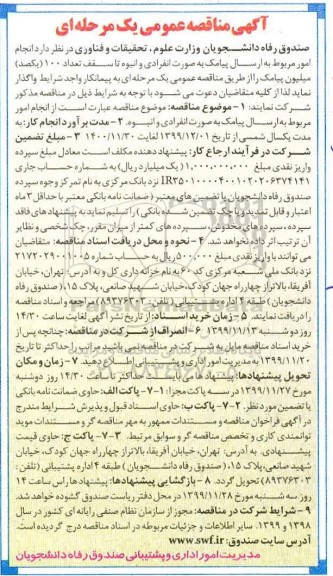 آگهی مناقصه عمومی یک مرحله ای
صندوق رفاه دانشجویان وزارت علوم، تحقیقات و فناوری در نظر دارد انجام
امور مربوط به ارسال پیامک به صورت انفرادی و انبوه تا سقف تعداد ۱۰۰ (یکصد)
میلیون پیامک را از طریق مناقصه عمومی یک مرحله ای به پیمانکار واجد شرایط واگذار
نماید لذا از کلیه متقاضیان دعوت می شود با توجه به شرایط ذیل در مناقصه مذکور
شرکت نمایند: ۱- موضوع مناقصه: موضوع مناقصه عبارت است از انجام امور
مربوط به ارسال پیامک به صورت انفرادی و انبوه. ۲- مدت برآورد انجام کار: به
مدت یکسال شمسی از تاریخ ۱۳۹۹/۱۲/۰۱ لغایت ۱۴۰۰/۱۱/۳۰ ۳- مبلغ تضمین
شرکت در فرآیند ارجاع کار: پیشنهاد دهنده مکلف است معادل مبلغ سپرده
واریز نقدی مبلغ ۱,۰۰۰,۰۰۰,۰۰۰ (یک میلیارد ریال) به شماره حساب جاری
نزد بانک مرکزی به نام تمرکز وجوه سپرده
صندوق رفاه دانشجویان یا تضمین های معتبر (ضمانت نامه بانکی معتبر با حداقل ۳ ماه
اعتبار و قابل تمدید و یا چک تضمین شده بانکی) را تسلیم نماید به پیشنهادهای فاقد
سپرده، سپرده های مخدوش، سپرده های کمتر از میزان مقرر، چک شخصی و نظایر
آن ترتیب اثر داده نخواهد شد. ۴- نحوه و محل دریافت اسناد مناقصه: متقاضیان
می توانند با واریز نقدی مبلغ ۵۰۰,۰۰۰ ریال به حساب شماره ۲۱۷۲۰۲۹۰۰۱۰۰۵
نزد بانک ملی شعبه مرکزی کد ۶۰ به نام خزانه داری کل و به آدرس: تهران، خیابان
آفریقا، بالاتر از چهارراه جهان کودک، خیابان شهید صانعی، پلاک ۱۵، (صندوق رفاه
دانشجویان) طبقه ۴ اداره پشتیبانی (تلفن: ۸۸۹۳۷۶۳۰۳) مراجعه و اسناد مناقصه
را دریافت نمایند. ۵- زمان خرید اسناد: از تاریخ نشر آگهی لغایت ساعت ۱۴/۳۰
روز دوشنبه ۱۳۹۹/۱۱/۱۳ ۶- انصراف از شرکت در مناقصه: چنانچه پس از
خرید اسناد مناقصه مایل به شرکت در مناقصه نمی باشید مراتب را حداکثر تا تاریخ
۱۳۹۹/۱۱/۲۰ به مدیریت امور اداری و پشتیبانی اطلاع دهید. ۷- زمان و مکان
تحویل پیشنهادها: پیشنهادها می بایست حداکثر تا ساعت ۱۴/۳۰ روز دوشنبه
مورخ ۱۳۹۹/۱۱/۲۷ در سه پاکت مجزا: ۱-۷- پاکت الف: حاوی ضمانت نامه بانکی
یا تضمین مورد نظر. ۲-۷- پاکت ب: حاوی اسناد قبول و پذیرش شرایط مندرج
در آگهی فراخوان مناقصه و مستندات ممهور به مهر مناقصه گر و مستندات موید
توانمندی کاری و تخصص مناقصه گر و سوابق مرتبط. ۳-۷- پاکت ج: حاوی قیمت
پیشنهادی، به آدرس: تهران، خیابان آفریقا، بالاتر از چهارراه جهان کودک، خیابان
شهید صانعی، پلاک ۱۵، (صندوق رفاه دانشجویان) طبقه ۴ اداره پشتیبانی (تلفن:
تحویل گردد. ۸- بازگشایی پیشنهادها: پیشنهادها راس ساعت ۱۴
روز سه شنبه مورخ ۱۳۹۹/۱۱/۲۸ در محل دفتر ریاست صندوق گشوده خواهد شد.
۹- شرایط شرکت در مناقصه: مجوز از سازمان نظام صنفی رایانه ای کشور در سال
۱۳۹۸ و ۱۳۹۹. سایر اطلاعات و جزئیات مربوطه در اسناد مناقصه درج گردیده است.
آدرس سایت صندوق: www.swf.ir
مدیریت امور اداری و پشتیبانی صندوق رفاه دانشجویان